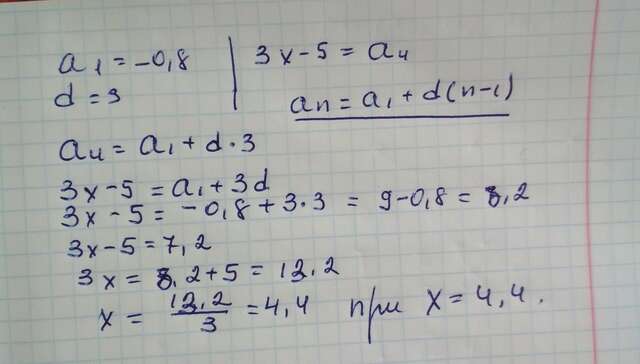 a₁ = -0,8 | 3x - 5 = a₄
d = 3
aₙ = a₁ + d(n-1)
a₄ = a₁ + d·3
3x - 5 = a₁ + 3d
3x - 5 = -0,8 + 3·3 = 9 - 0,8 = 8,2
3x - 5 = 7,2
3x = 8,2 + 5 = 13,2
x = 13,2/3 = 4,4 при x = 4,4.